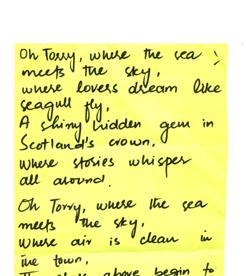 Oh Torry, where the sea
meets the sky,
where lovers dream like
seagull fly,
A shiny hidden gem in
Scotland's crown,
where stories whisper
all around.
Oh Torry, where the sea
meets the sky,
where air is clean in
the town,
above begin to